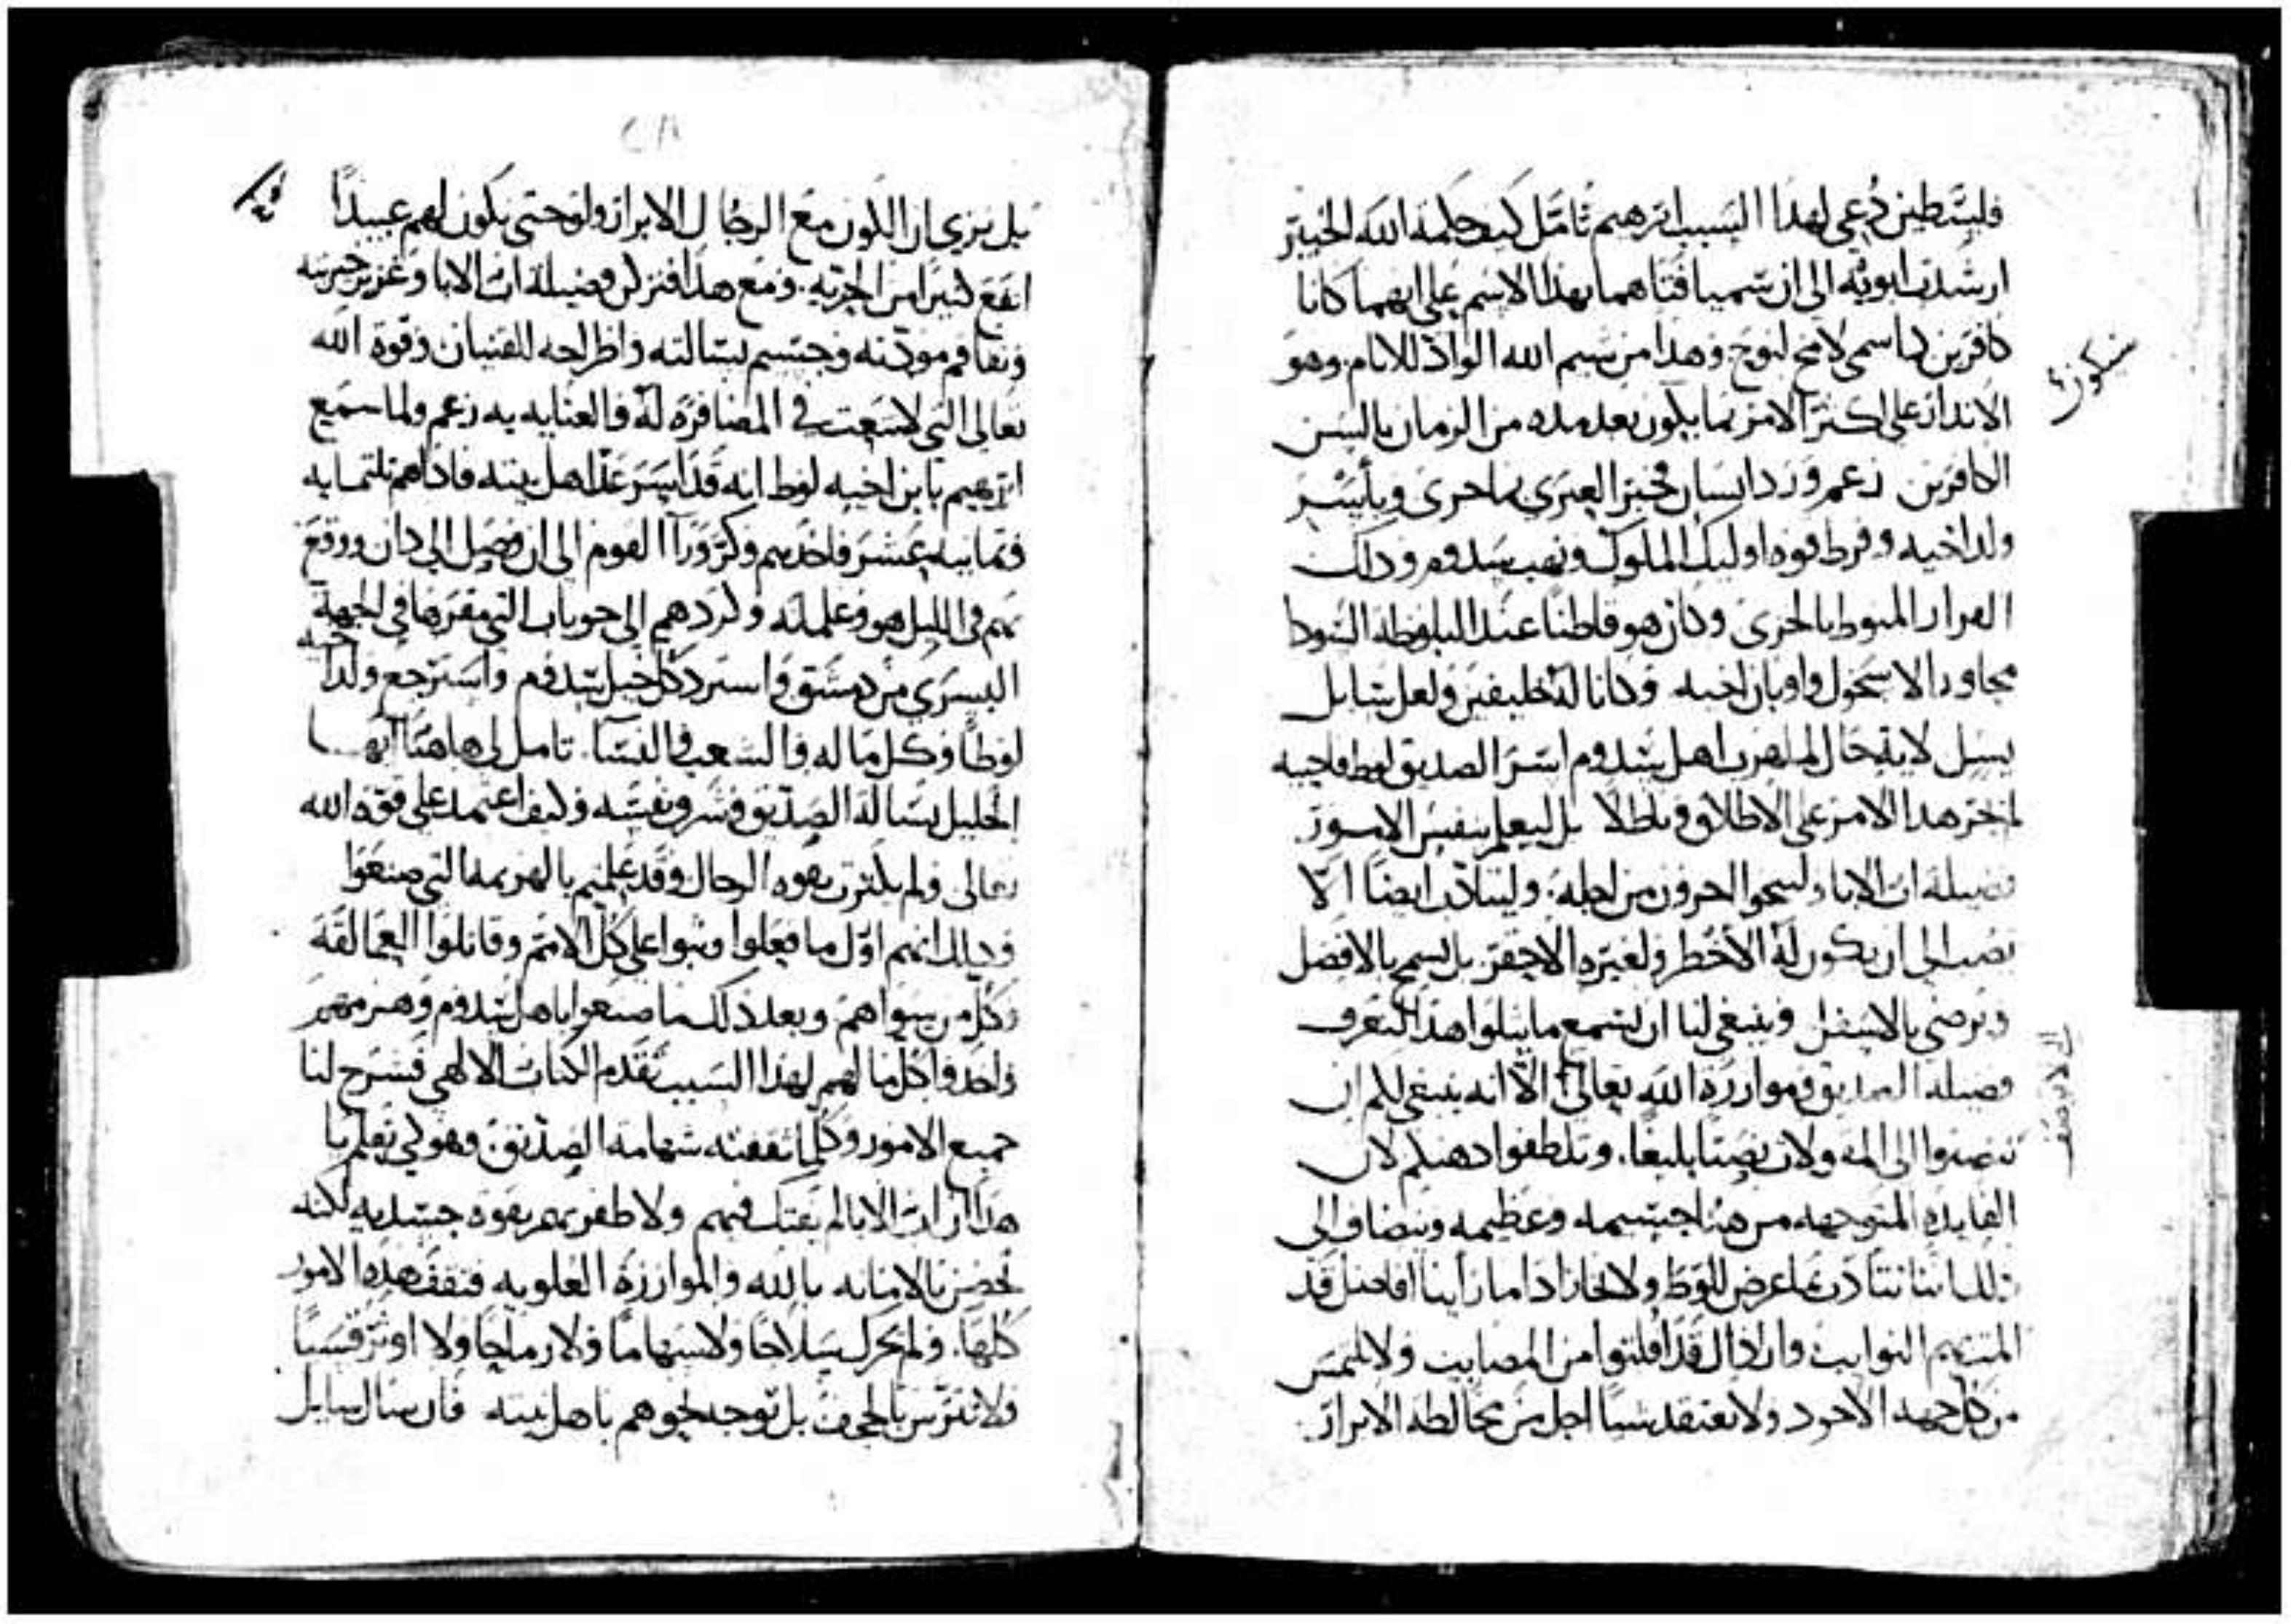 فلسطين دُعي لهذا السبب ابرهيم تامّل كيف حكمة الله الخبير
ارشدت ابويه الى ان سميا فتاهما بهذا الاسم على انهما كانا
كافرين كما سمى لامخ لنوح وهدا من شيم الله الوادّ للانام وهو
الاندار على اكثر الامر بما يكون بعد مده من الزمان بالسن
الكافرين زعم وورد انسان فخبر العبري بما جرى وبأسر
ولد اخيه وفرط قوه اوليك الملوك ونهب سدوم ودلك
الفرار المنوط بالخزى وكان هو قاطناً عند البلوطه السودا
مجاورا الاسخول واونان اخيه وكانا له خليفين ولعل سايل
يسل لاية حال لما هرب اهل سدوم اسر الصديق لوط فاجيبه
لم يجر هدا الامر على الاطلاق وباطلا بل ليعلم بنفس الامور
فضيلة اب الابا وليسجوا اخرون من اجله وليتادّب ايضًا الّا
نصب الى ان يكون له الأخطر ولغيره الاحقر بل يسمح بالافضل
ويرضى بالاسفل وينبغي لنا ان نسمع ما يتلوا هذا لنعرف
فضيلة الصديق وموازرة الله تعالى الّا انه ينبغي لكم ان
تنصتوا الى المقولات نصتا بليغا. وتلطفوا دهنكم لان
الفايده المتوجهه من هنا جسيمه وعظيمه وينضاف الى
ذلك اننا نتأدب بما عرض للوط ولا نحار اذا ما رأينا افاضل قد
المت بهم النوايب وارذال قد افلتوا من المصايب ولا نلتمس
من كل جهد الاجود ولا نعتقد شيا اجل من مخالطه الابرار
منكوز
بل نرى ان الكون مع الرجال الابرار ولو حتى نكون لهم عبيداً
انفع كثيرا من الحرّيه. ومع هدا فنزكن فضيلة اب الابا وغزير حريته
وتفاقم مودّته وجسيم بسالته واظراحه للفتيان وقوة الله
تعالى التي لاسعت في المضافرة له والعنايه به زعم ولما سمع
ابرهيم بابن اخيه لوط انه قد أُسر عدّ اهل بيته فاذا هم ثلثمايه
وثمانيه عشر فاخدهم وكرّ ورآ القوم الى ان وصل الى دان ووقع
بهم في الليل هو وغلمانه وكردهم الى حوباب التي مقرها في الجهة
اليسرى من دمشق واسترد كل خيل سدوم واسترجع ولد اخيه
لوطاً وكل ما له والشعب والنسآ. تامل لى هاهنا ايها
الخليل بسالة الصدّيق وشرف نفسه وكيف اعتمد على قوه الله
تعالى ولم يكترت بقوه الرجال وقد علم بالهزيمه التي صنعوا
وذلك انهم اوّل ما فعلوا وثبوا على كل الامم وقاتلوا العمالقة
وكل من سواهم وبعد ذلك ما صنعوا باهل سدوم وهزموهم
واخدوا كل ما لهم لهذا السبب تقدم الكتاب الالهي فشرح لنا
جميع الامور وكلما ثقفته شهامة الصدّيق. وهو لي نعلم يا
هدا ان اب الابا لم يفتك فيهم ولا ظفر بهم بقوه جسديه لكنه
تحصن بالامانه بالله والموازرة العلويه فثقف هده الامور
كلها. ولم يحرك سلاحا ولا سهاما ولا رماحا ولا اوتر قسيا
ولا تترّس بالحجف بل توجه نحوهم باهل بيته فان سال سايل